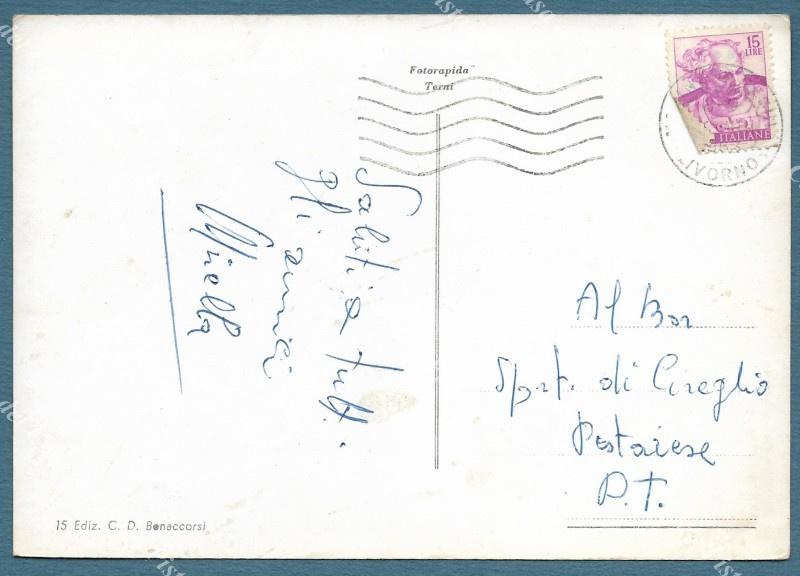 Fotorapida
Terni
15
LIRE
ITALIANE
LIVORNO
Saluti a tutti
gli amici
Mirella
Al Bar
Sport. di Cireglio
Pistoiese
P.T.
15 Ediz. C. D. Bonaccorsi